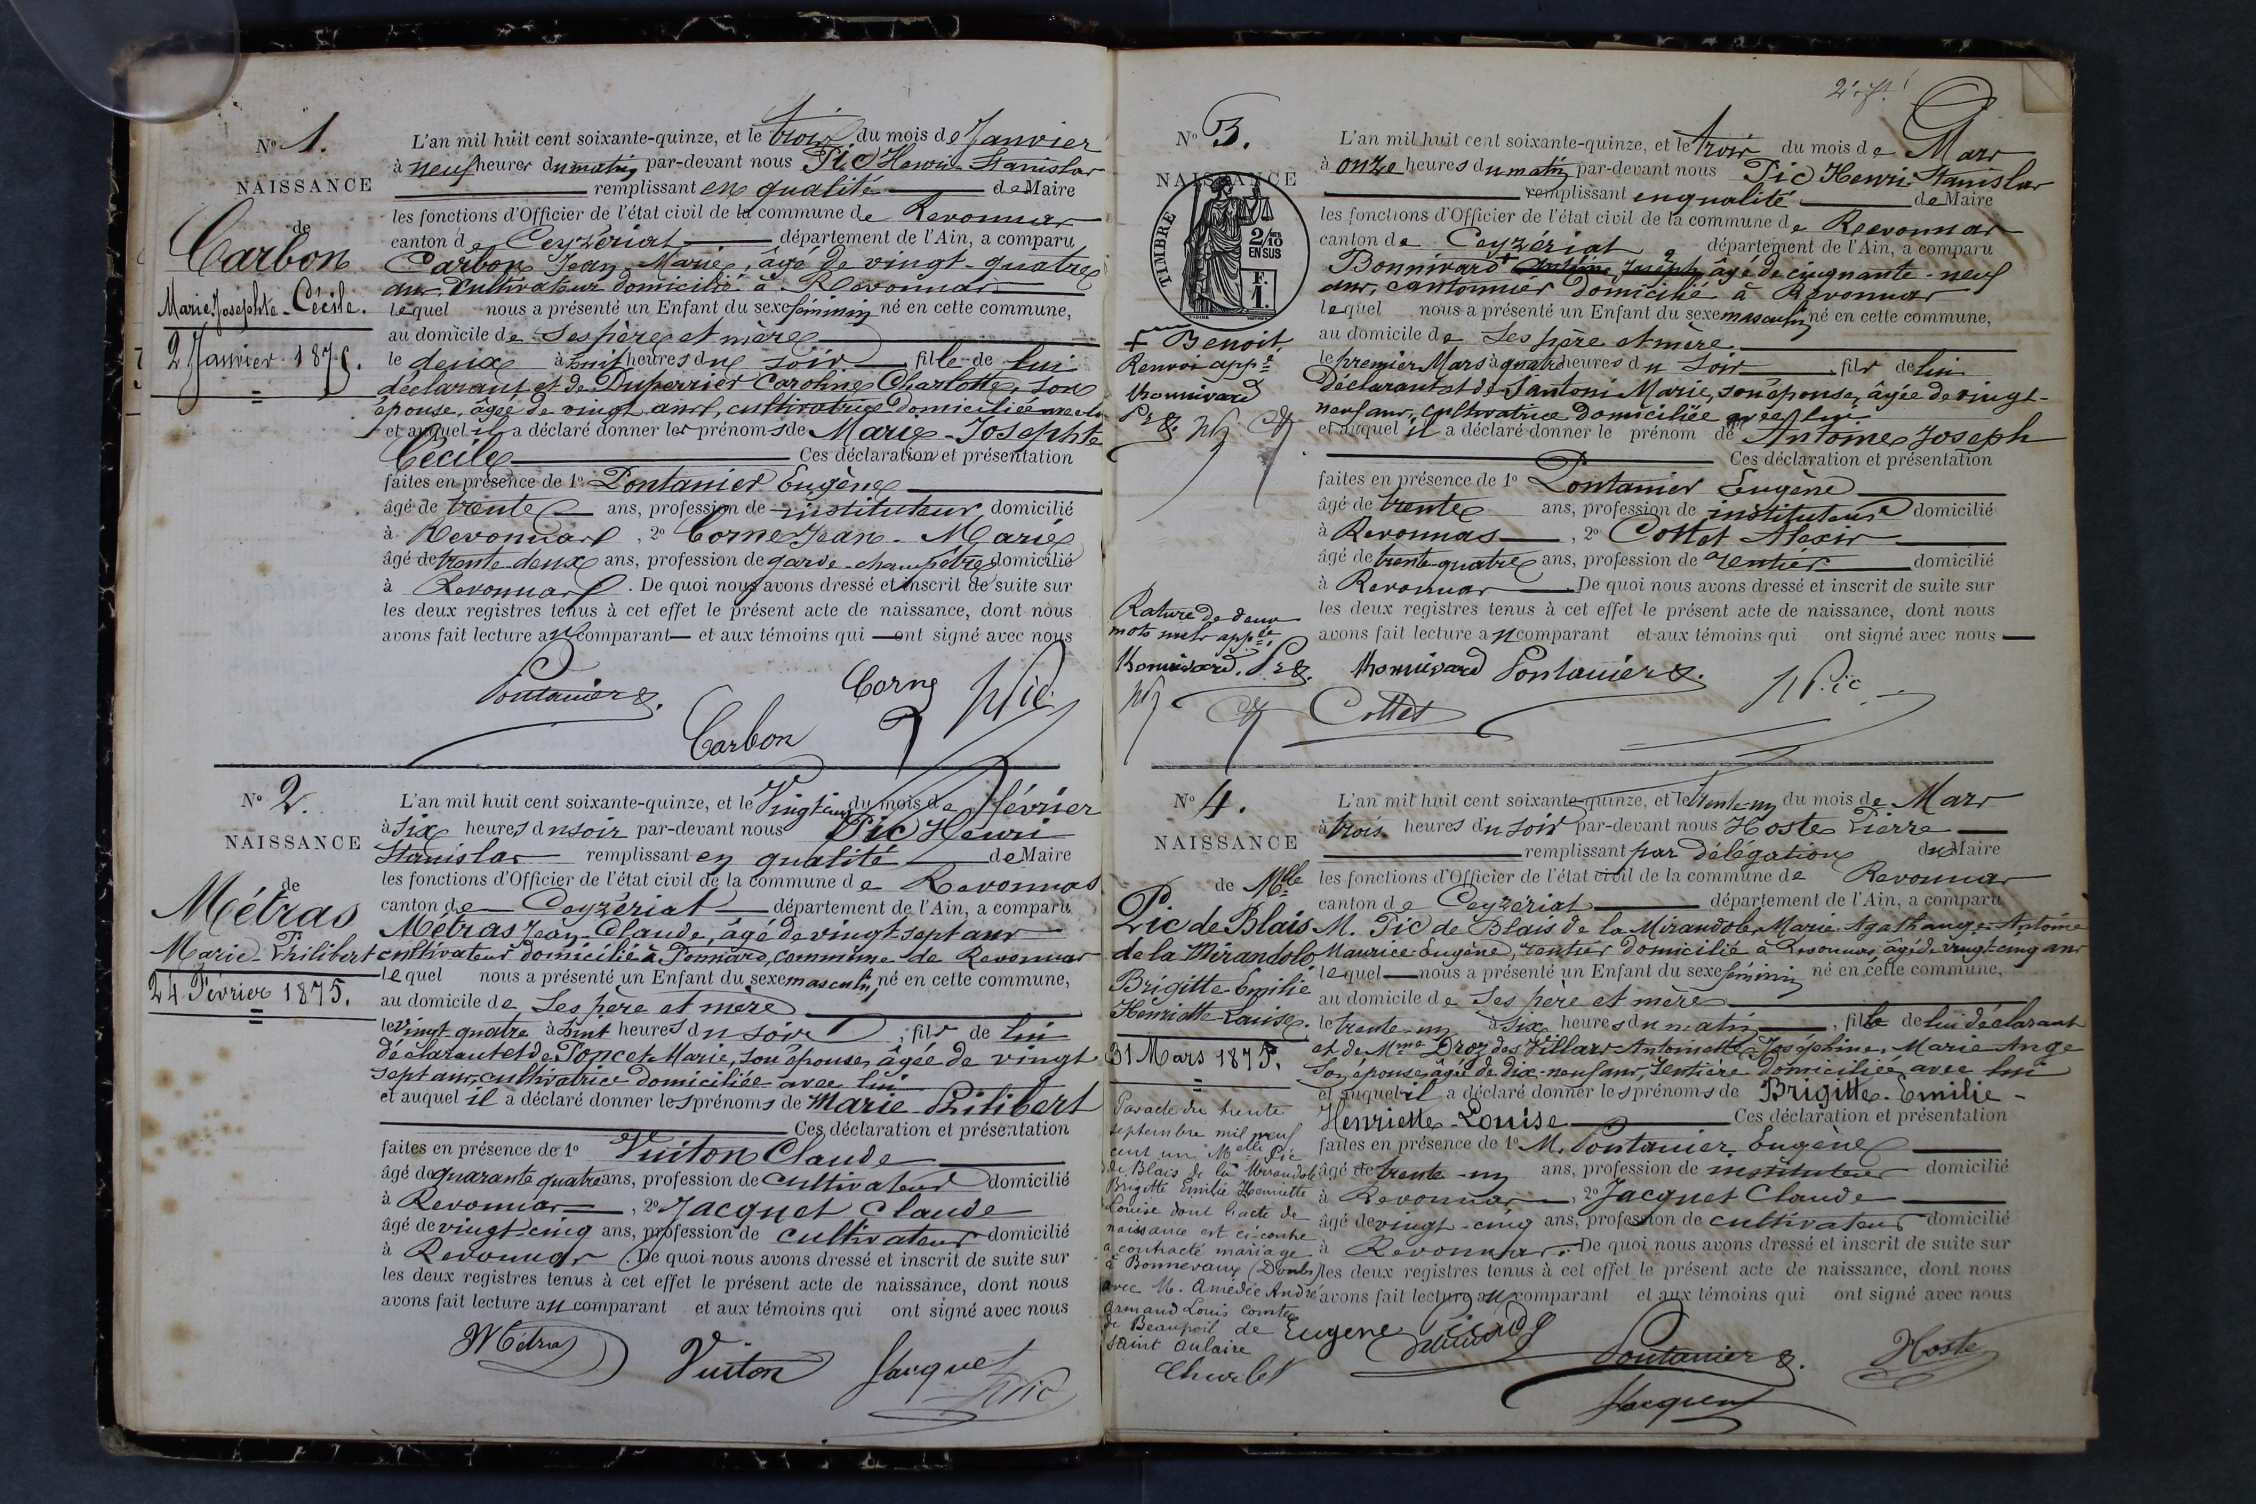 N° 1.
NAISSANCE
de
Carbon
Marie-Josephte-Cécile.
2 Janvier 1875.
L'an mil huit cent soixante-quinze, et le trois du mois de Janvier
à neuf heures du matin par-devant nous Pic Henri-Stanislas
remplissant en qualité de Maire
les fonctions d'Officier de l'état civil de la commune de Revonnas
canton de Ceyzériat département de l'Ain, a comparu
Carbon Jean Marie, âgé de vingt-quatre
ans, cultivateur domicilié à Revonnas
lequel nous a présenté un Enfant du sexe féminin né en cette commune,
au domicile de ses père et mère
le deux à huit heures du soir fille de lui
déclarant et de Duperrier Caroline Charlotte, son
épouse, âgée de vingt ans, cultivatrice domiciliée avec lui
et auquel il a déclaré donner les prénoms de Marie-Josephte
Cécile Ces déclaration et présentation
faites en présence de 1° Pontanier Eugène
âgé de trente ans, profession de instituteur domicilié
à Revonnas, 2° Corne Jean-Marie
âgé de trente-deux ans, profession de garde-champêtre domicilié
à Revonnas. De quoi nous avons dressé et inscrit de suite sur
les deux registres tenus à cet effet le présent acte de naissance, dont nous
avons fait lecture au comparant et aux témoins qui ont signé avec nous
Pontanier E. Corne H Pic
Carbon
N° 2.
NAISSANCE
de
Métras
Marie-Philibert
24 Février 1875.
L'an mil huit cent soixante-quinze, et le Vingt cinq du mois de Février
à six heures du soir par-devant nous Pic Henri
Stanislas remplissant en qualité de Maire
les fonctions d'Officier de l'état civil de la commune de Revonnas
canton de Ceyzériat département de l'Ain, a comparu
Métras Jean-Claude, âgé de vingt-sept ans
cultivateur domicilié à Ponnard, commune de Revonnas
lequel nous a présenté un Enfant du sexe masculin né en cette commune,
au domicile de ses père et mère
le vingt quatre à huit heures du soir, fils de lui
déclarant et de Poncet Marie, son épouse, âgée de vingt
sept ans, cultivatrice domiciliée avec lui
et auquel il a déclaré donner les prénoms de Marie-Philibert
Ces déclaration et présentation
faites en présence de 1° Vuiton Claude
âgé de quarante quatre ans, profession de cultivateur domicilié
à Revonnas, 2° Jacquet Claude
âgé de vingt-cinq ans, profession de cultivateur domicilié
à Revonnas. De quoi nous avons dressé et inscrit de suite sur
les deux registres tenus à cet effet le présent acte de naissance, dont nous
avons fait lecture au comparant et aux témoins qui ont signé avec nous
Métras Vuiton Jacquet H Pic
N° 3.
NAISSANCE
TIMBRE
2/10
EN SUS
F.
1.
+ Benoit
Renvoi app.é
Bonnivard
P. E.
Rature de deux
mots nuls app.ée
Bonnivard. P. E.
L'an mil huit cent soixante-quinze, et le trois du mois de Mars
à onze heures du matin par-devant nous Pic Henri-Stanislas
remplissant en qualité de Maire
les fonctions d'Officier de l'état civil de la commune de Revonnas
canton de Ceyzériat département de l'Ain, a comparu
Bonnivard + Antoine Joseph âgé de cinquante-neuf
ans, cantonnier domicilié à Revonnas
lequel nous a présenté un Enfant du sexe masculin né en cette commune,
au domicile de ses père et mère
le premier Mars à quatre heures du soir fils de lui
déclarant et de Santoni Marie, son épouse, âgée de vingt-
neuf ans, cultivatrice domiciliée avec lui
et auquel il a déclaré donner le prénom de Antoine Joseph
Ces déclaration et présentation
faites en présence de 1° Pontanier Eugène
âgé de trente ans, profession de instituteur domicilié
à Revonnas, 2° Cottet Alexis
âgé de trente quatre ans, profession de rentier domicilié
à Revonnas De quoi nous avons dressé et inscrit de suite sur
les deux registres tenus à cet effet le présent acte de naissance, dont nous
avons fait lecture au comparant et aux témoins qui ont signé avec nous
Bonnivard Pontanier E. H Pic
Cottet
N° 4.
NAISSANCE
de Mlle
Pic de Blais
de la Mirandole
Brigitte-Emilie
Henriette-Louise.
31 Mars 1875.
Par acte du trente
septembre mil neuf
cent un Melle Pic
de Blais de la Mirandole
Brigitte Emilie Henriette
Louise dont l'acte de
naissance est ci-contre
a contracté mariage
à Bonnevaux (Doubs)
avec M. Amédée André
Armand Louis Comte
de Beaupoil de
Saint Aulaire
L'an mil huit cent soixante-quinze, et le trente-un du mois de Mars
à trois heures du soir par-devant nous Hoste Pierre
remplissant par délégation du Maire
les fonctions d'Officier de l'état civil de la commune de Revonnas
canton de Ceyzériat département de l'Ain, a comparu
M. Pic de Blais de la Mirandole, Marie-Agathange-Antoine
Maurice Eugène, rentier domicilié à Revonnas, âgé de vingt cinq ans
lequel nous a présenté un Enfant du sexe féminin né en cette commune,
au domicile de ses père et mère
le trente-un à six heures du matin, fille de lui déclarant
et de Mme Droz des Villars Antoinette, Joséphine, Marie Ange
son épouse, âgée de dix-neuf ans, rentière domiciliée avec lui
et auquel il a déclaré donner les prénoms de Brigitte-Emilie-
Henriette-Louise Ces déclaration et présentation
faites en présence de 1° M. Pontanier Eugène
âgé de trente-un ans, profession de instituteur domicilié
à Revonnas, 2° Jacquet Claude
âgé de vingt-cinq ans, profession de cultivateur domicilié
à Revonnas. De quoi nous avons dressé et inscrit de suite sur
les deux registres tenus à cet effet le présent acte de naissance, dont nous
avons fait lecture au comparant et aux témoins qui ont signé avec nous
Eugène Pontanier E. Hoste
Jacquet